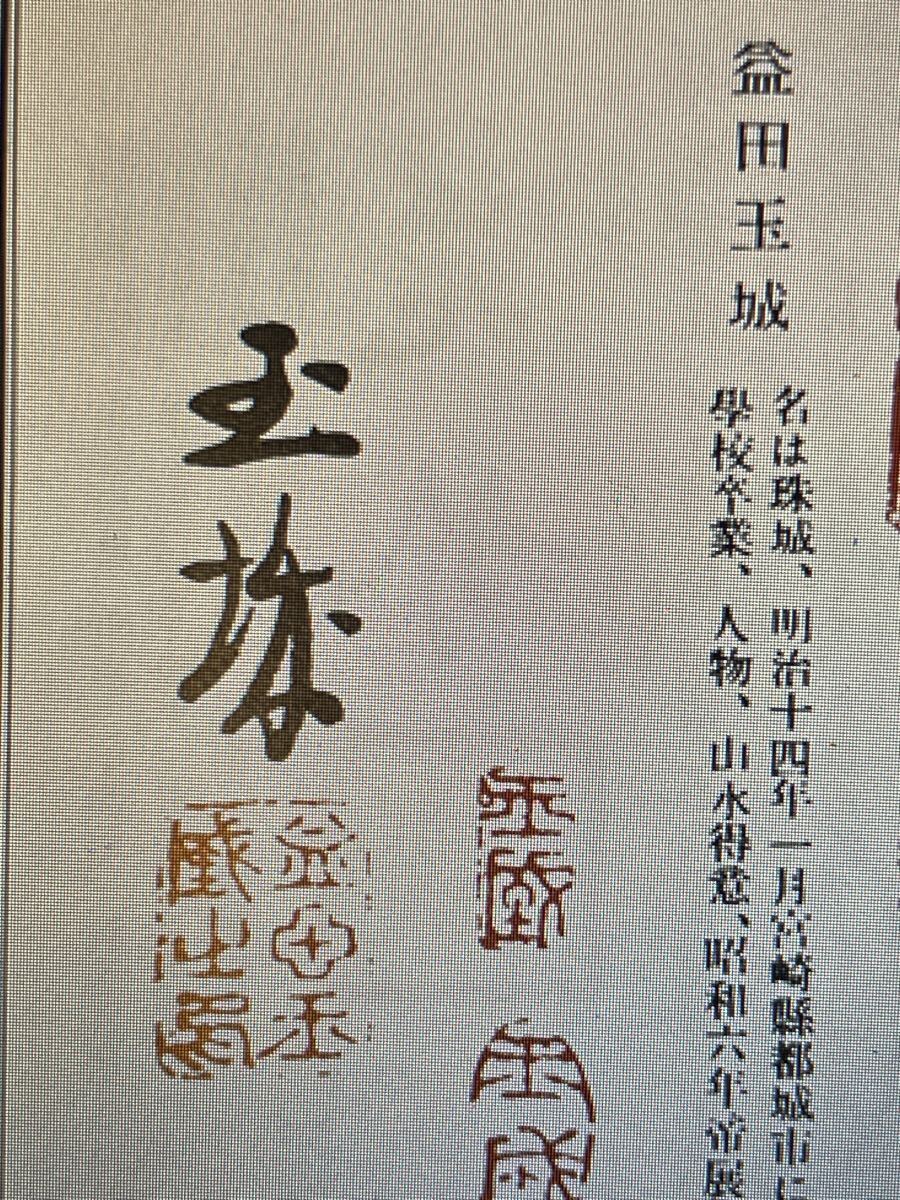 益田玉城
名は珠城、明治十四年一月宮崎縣都城市に
學校卒業、人物、山水得意、昭和六年帝展
玉城
玉城
玉城
益田玉
城之